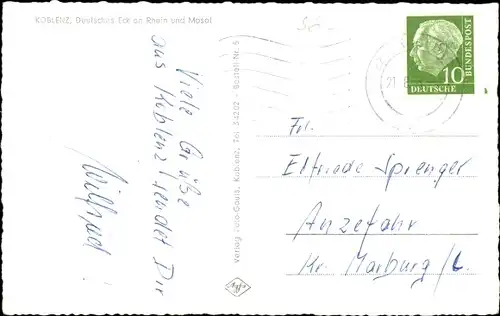 KOBLENZ, Deutsches Eck an Rhein und Mosel
Viele Grüße
aus Koblenz sendet Dir
Wilfried!
Verlag Foto-Gauls, Koblenz, Tel 34202 - Bestell-Nr. 5
Agfa
10
DEUTSCHE
BUNDESPOST
21. 8.
Frl.
Elfriede Sprenger
Anzefahr
Kr. Marburg/L.